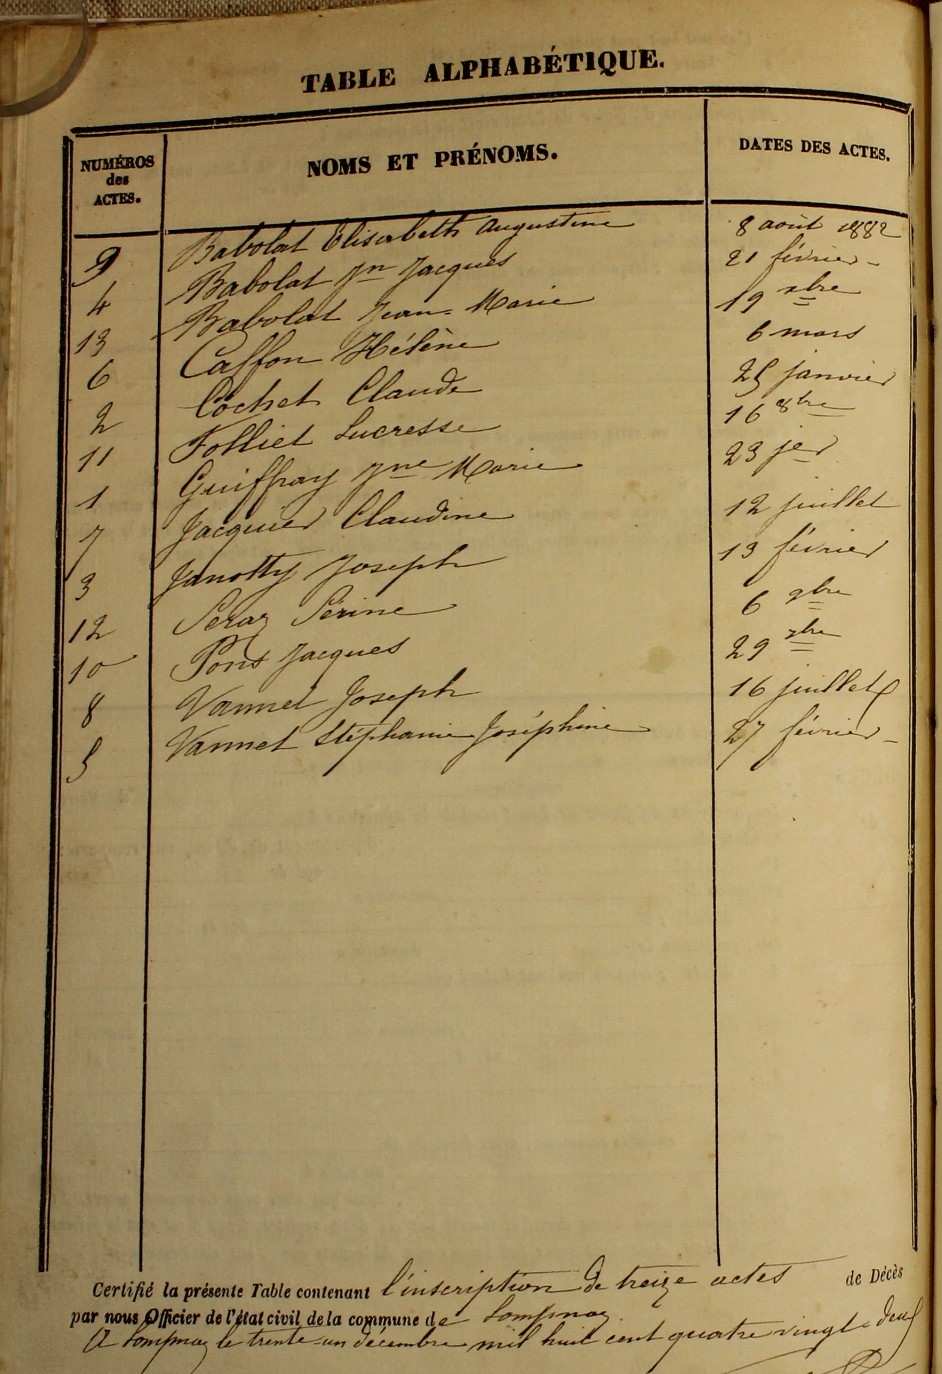 TABLE ALPHABÉTIQUE.
NUMÉROS des ACTES. NOMS ET PRÉNOMS. DATES DES ACTES.
9 Babolat Élisabeth Augustine 8 août 1882
4 Babolat Jn Jacques 21 février
13 Babolat Jean-Marie 19 xbre
6 Caffon Hélène 6 mars
2 Cochet Claude 25 janvier
11 Folliet Lucresse 16 8bre
1 Guiffray Jne Marie 23 jer
7 Jacquier Claudine 12 juillet
3 Janotty Joseph 13 février
12 Seraz Sérine 6 9bre
10 Pons Jacques 29 7bre
8 Vannet Joseph 16 juillet
5 Vannet Stéphanie Joséphine 27 février
Certifié la présente Table contenant l'inscription de treize actes de Décès
par nous Officier de l'état civil de la commune de Lompnaz
A Lompnaz le trente-un décembre mil huit cent quatre vingt-deux